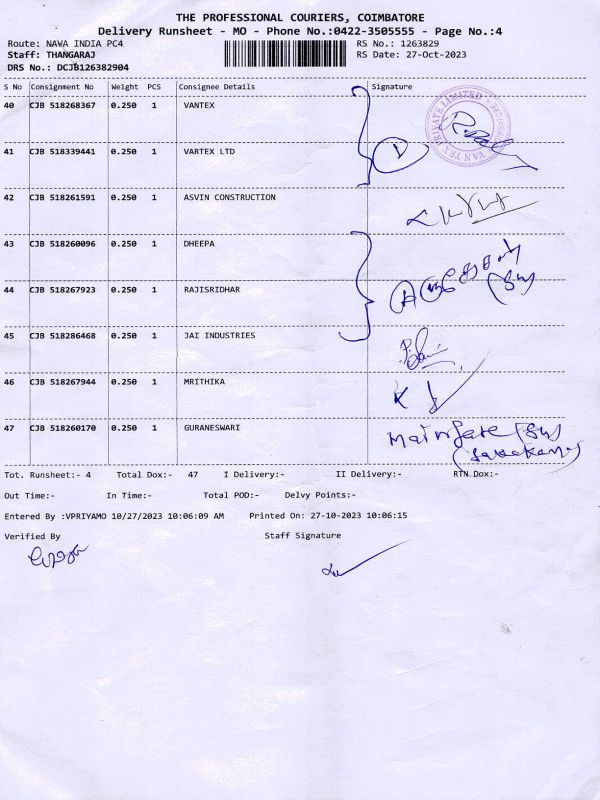 THE PROFESSIONAL COURIERS, COIMBATORE
Delivery Runsheet - MO - Phone No.:0422-3505555 - Page No.:4
Route: NAWA INDIA PC4 RS No.: 1263829
Staff: THANGARAJ RS Date: 27-Oct-2023
DRS No.: DCJB126382904
S No Consignment No Weight PCS Consignee Details Signature
40 CJB 518268367 0.250 1 VANTEX
41 CJB 518339441 0.250 1 VARTEX LTD
42 CJB 518261591 0.250 1 ASVIN CONSTRUCTION
43 CJB 518260096 0.250 1 DHEEPA
44 CJB 518267923 0.250 1 RAJISRIDHAR
45 CJB 518286468 0.250 1 JAI INDUSTRIES
46 CJB 518267944 0.250 1 MRITHIKA
47 CJB 518260170 0.250 1 GURANESWARI
VAN TEX PRIVATE LIMITED
Tot. Runsheet:- 4 Total Dox:- 47 I Delivery:- II Delivery:- RTN Dox:-
Out Time:- In Time:- Total POD:- Delvy Points:-
Entered By :VPRIYAMO 10/27/2023 10:06:09 AM Printed On: 27-10-2023 10:06:15
Verified By Staff Signature